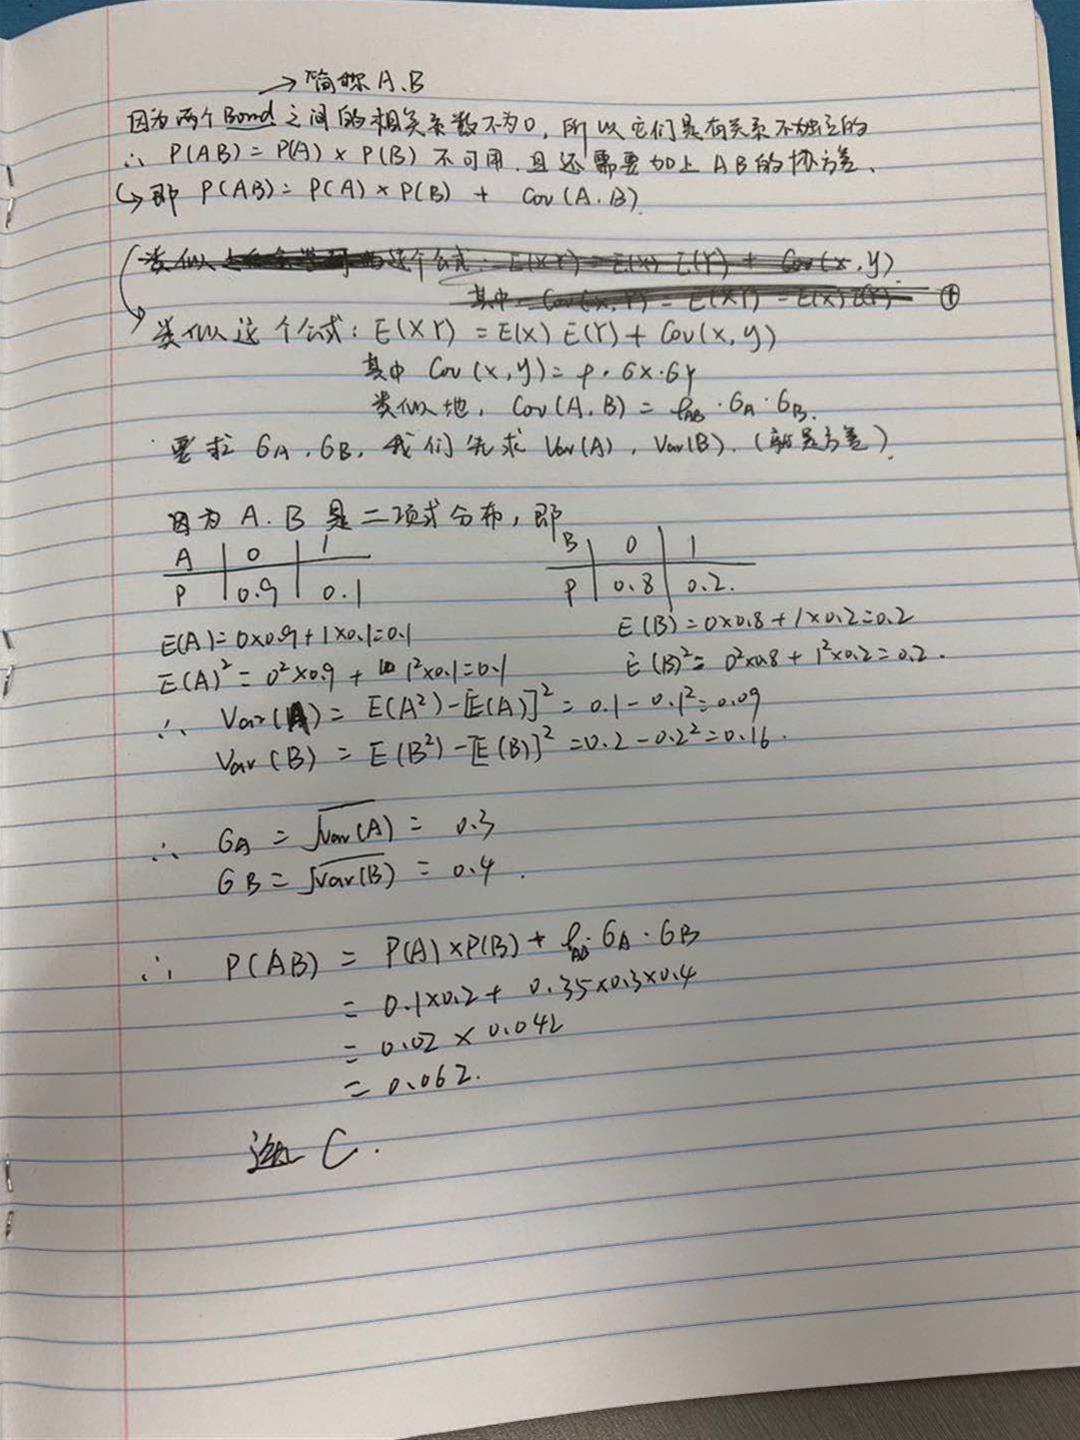 →简称A.B
因为两个Bond之间的相关系数不为0,所以它们是有关系不独立的
∴ P(AB)=P(A)×P(B)不可用.且还需要加上AB的协方差.
↳即 P(AB)=P(A)×P(B) + Cov(A.B)
类似 这个公式: E(XY)=E(X) E(Y) + Cov(x,y)
其中 Cov(x,Y) = E(XY) - E(X)E(Y) ①
类似这个公式: E(XY) = E(X) E(Y) + Cov(x,y)
其中 Cov(x,y)= ρ·σX·σY
类似地, Cov(A.B) = ρAB·σA·σB.
要求 σA,σB, 我们先求 Var(A), Var(B). (就是方差)
因为 A.B 是二项式分布,即
A | 0 | 1
P | 0.9 | 0.1
B | 0 | 1
P | 0.8 | 0.2.
E(A)=0×0.9+1×0.1=0.1
E(A)²= 0²×0.9 + 1²×0.1=0.1
E(B)=0×0.8+1×0.2=0.2
E(B)²= 0²×0.8 + 1²×0.2=0.2.
∴ Var(A)= E(A²)-[E(A)]²= 0.1-0.1²=0.09
Var(B) = E(B²)-[E(B)]²=0.2-0.2²=0.16.
∴ σA = √Var(A) = 0.3
σB = √Var(B) = 0.4.
∴ P(AB) = P(A)×P(B)+ ρAB·σA·σB
= 0.1×0.2+ 0.35×0.3×0.4
= 0.02 × 0.042
= 0.062.
选 C.